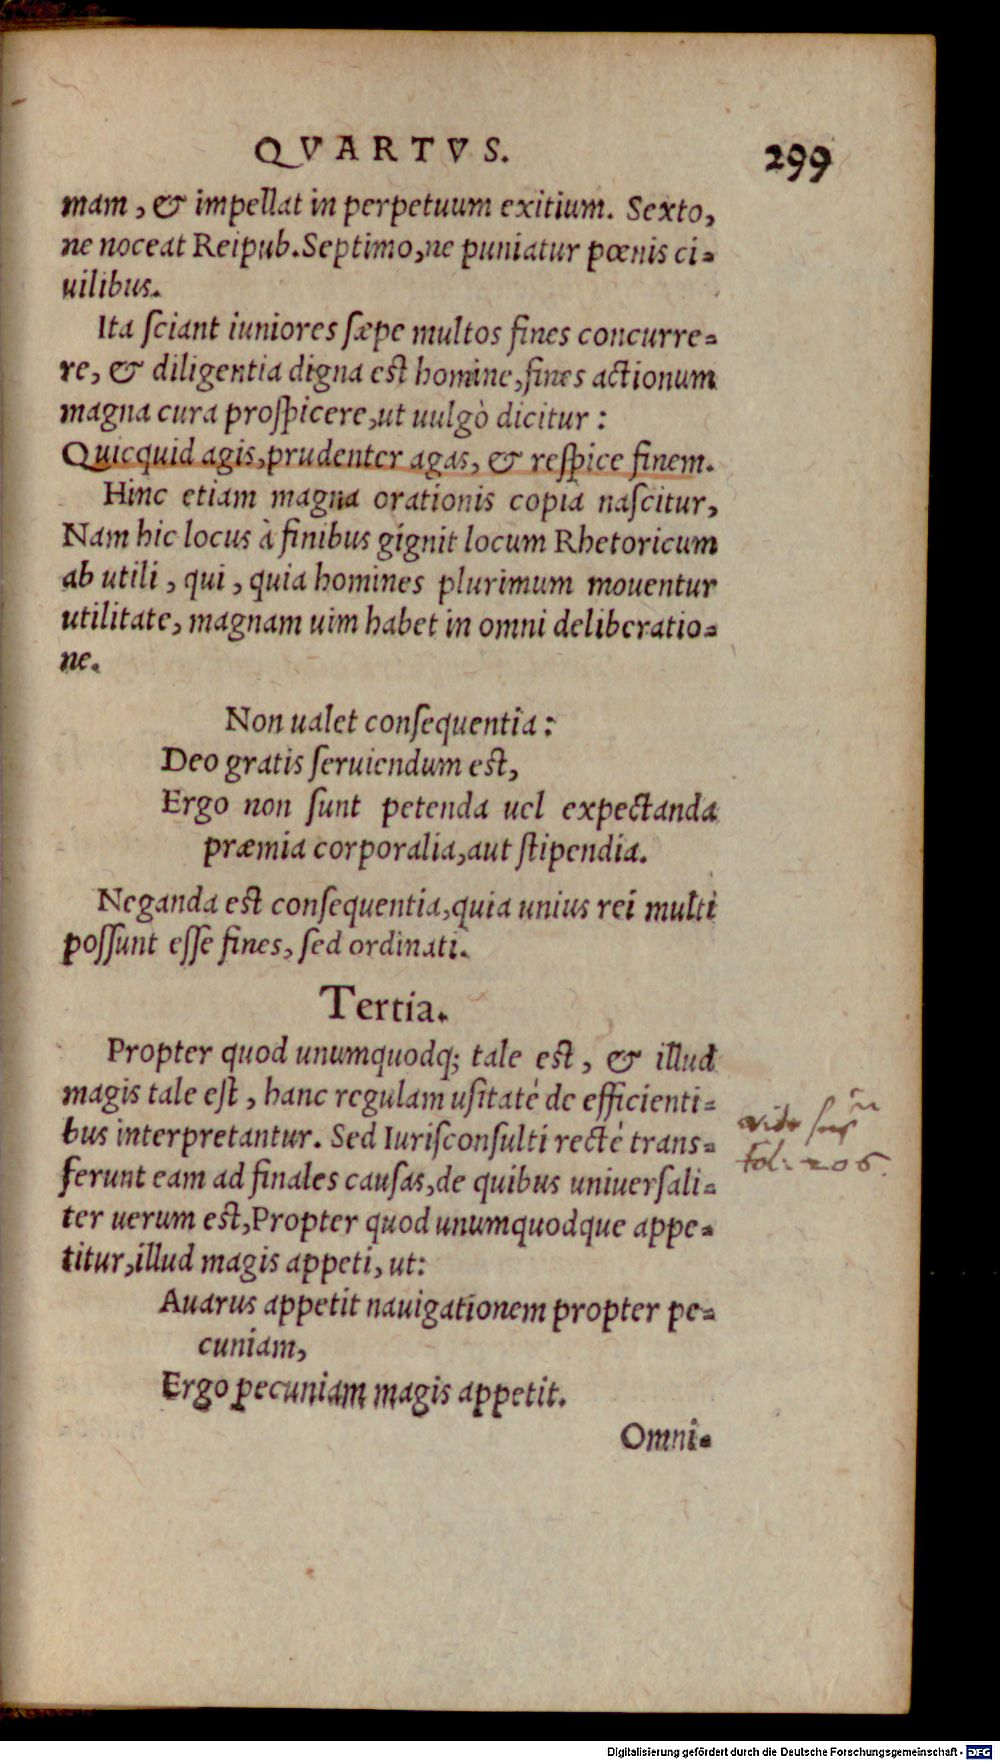 QVARTVS. 299
mam, & impellat in perpetuum exitium. Sexto,
ne noceat Reipub. Septimo, ne puniatur pœnis ci-
uilibus.
Ita sciant iuniores sæpe multos fines concurre-
re, & diligentia digna est homine, fines actionum
magna cura prospicere, ut uulgò dicitur:
Quicquid agis, prudenter agas, & respice finem.
Hinc etiam magna orationis copia nascitur,
Nam hic locus à finibus gignit locum Rhetoricum
ab utili, qui, quia homines plurimum mouentur
utilitate, magnam uim habet in omni deliberatio-
ne.
Non ualet consequentia:
Deo gratis seruiendum est,
Ergo non sunt petenda uel expectanda
præmia corporalia, aut stipendia.
Neganda est consequentia, quia unius rei multi
possunt esse fines, sed ordinati.
Tertia.
Propter quod unumquodq; tale est, & illud
magis tale est, hanc regulam usitaté de efficienti-
bus interpretantur. Sed Iurisconsulti recté trans-
ferunt eam ad finales causas, de quibus uniuersali-
ter uerum est, Propter quod unumquodque appe-
titur, illud magis appeti, ut:
Auarus appetit nauigationem propter pe-
cuniam,
Ergo pecuniam magis appetit.
Omni-
vide
fol: 206.
Digitalisierung gefördert durch die Deutsche Forschungsgemeinschaft - DFG